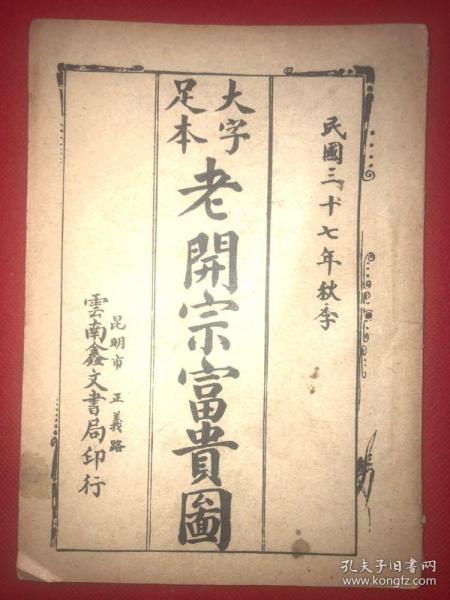 民國三十七年秋季
大字
足本
老開宗富貴圖
昆明市 正義路
雲南鑫文書局印行
孔夫子旧书网
www.kongfz.com